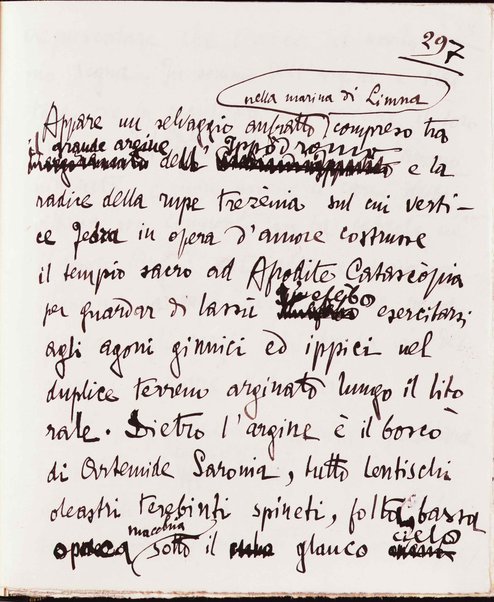 297
nella marina di Limna
Appare un selvaggio anfratto compreso tra
il grande argine dell' Ippòdromo e la
radice della rupe trezènia sul cui verti-
ce Fedra in opera d'amore costrusse
il tempio sacro ad Afrodite Catascòpia
per guardar di lassù l'efebo esercitarsi
agli agoni ginnici ed ippici nel
duplice terreno arginato lungo il lito
rale. Dietro l'argine è il bosco
di Artemide Saronia, tutto lentischi
oleastri terebinti spineti, folta bassa
macchia sotto il glauco cielo